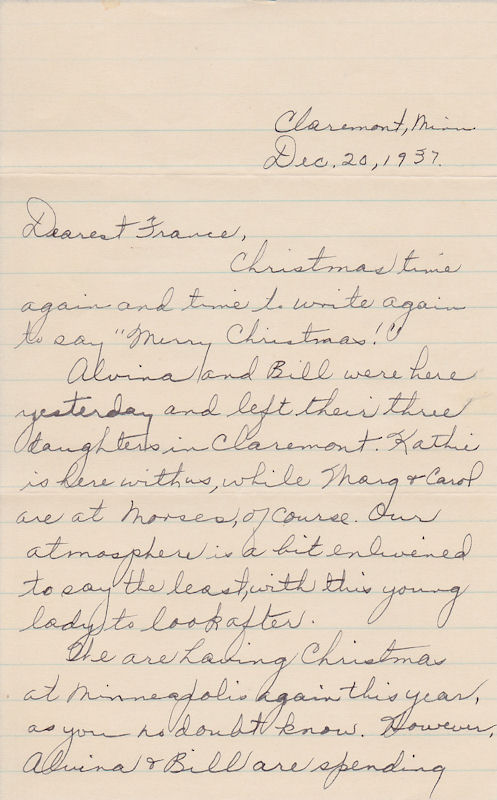 Claremont, Minn.
Dec. 20, 1937.
Dearest France,
Christmas time
again and time to write again
to say "Merry Christmas!"
Alvina and Bill were here
yesterday and left their three
daughters in Claremont. Kathie
is here with us, while Marg & Carol
are at Morses, of course. Our
atmosphere is a bit enlivened
to say the least, with this young
lady to look after.
We are having Christmas
at Minneapolis again this year,
as you no doubt know. However,
Alvina & Bill are spending